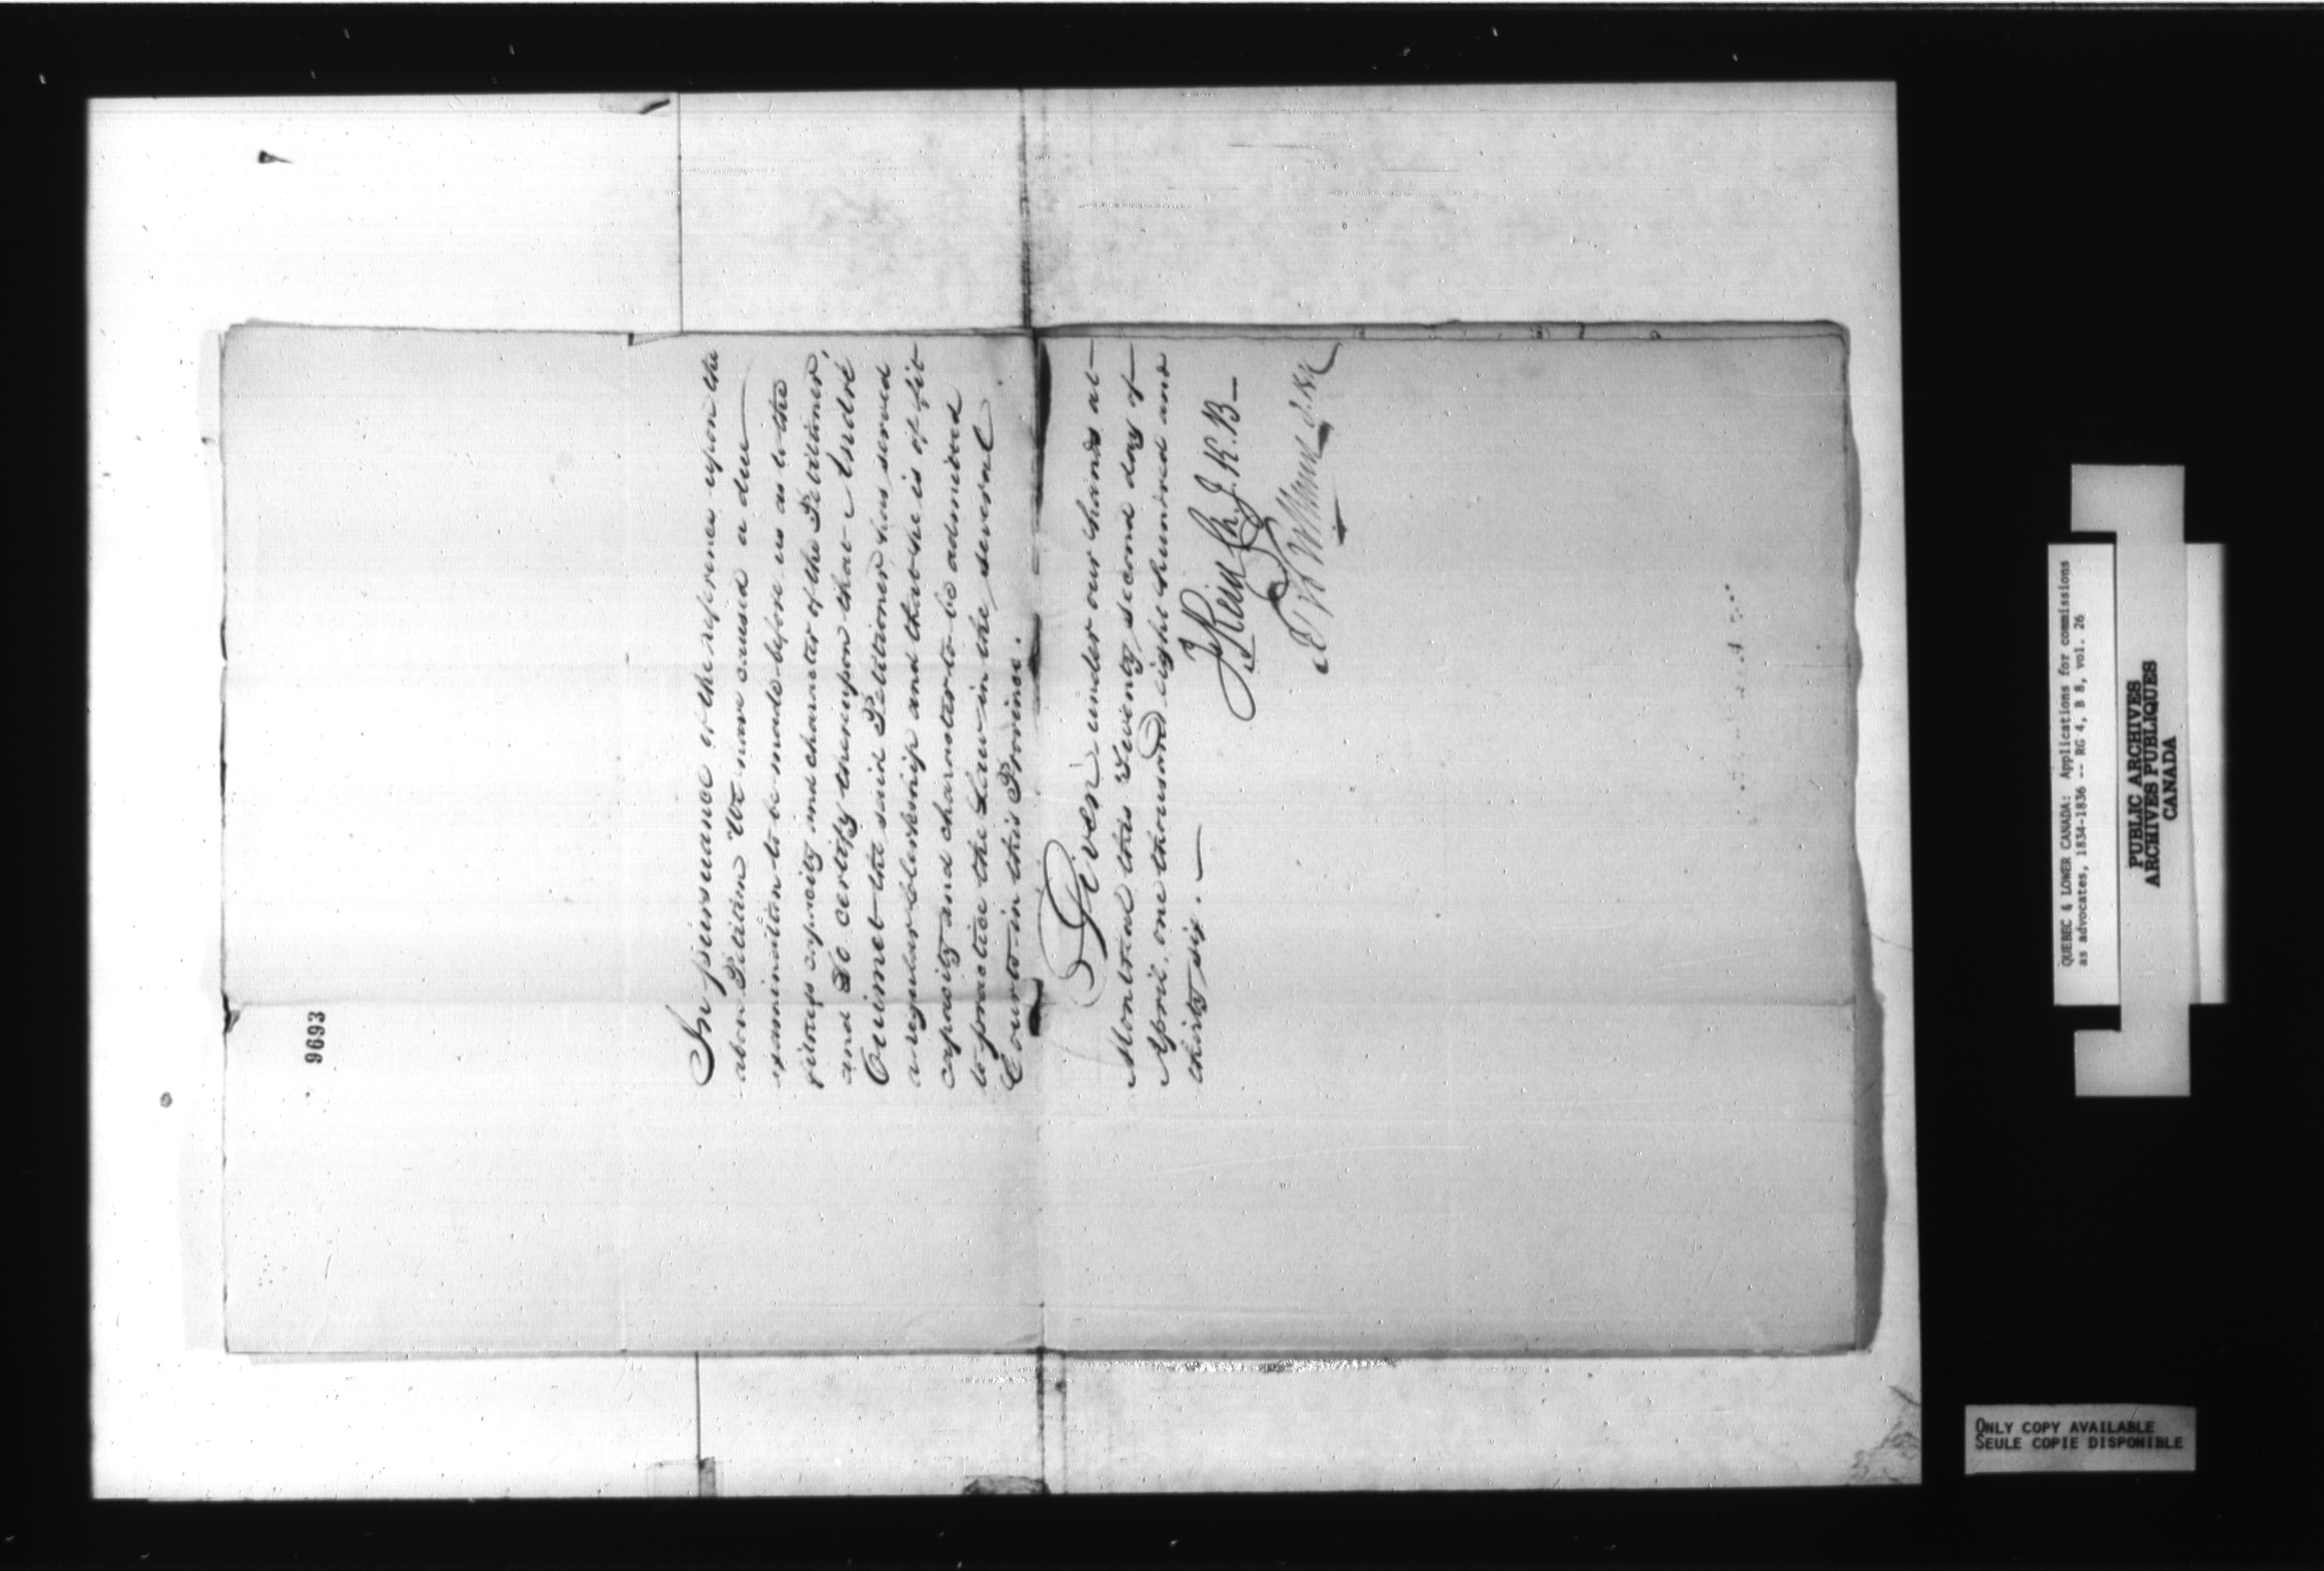 9693
In pursuance of the reference upon the
above Petition We have caused a due
examination to be made before us as to the
fitness capacity and character of the Petitioner,
and Do certify thereupon that André
Ouimet the said Petitioner has served
a regular clerkship and that he is of fit
capacity and character to be admitted
to practice the Law in the several
Courts in this Province.
Given under our hands at
Montreal this Twenty second day of
April, one thousand eight hundred and
thirty six.
J Reid Ch. J. K. B.
QUEBEC & LOWER CANADA: Applications for commissions
as advocates, 1834-1836 -- RG 4, B 8, vol. 26
PUBLIC ARCHIVES
ARCHIVES PUBLIQUES
CANADA
ONLY COPY AVAILABLE
SEULE COPIE DISPONIBLE